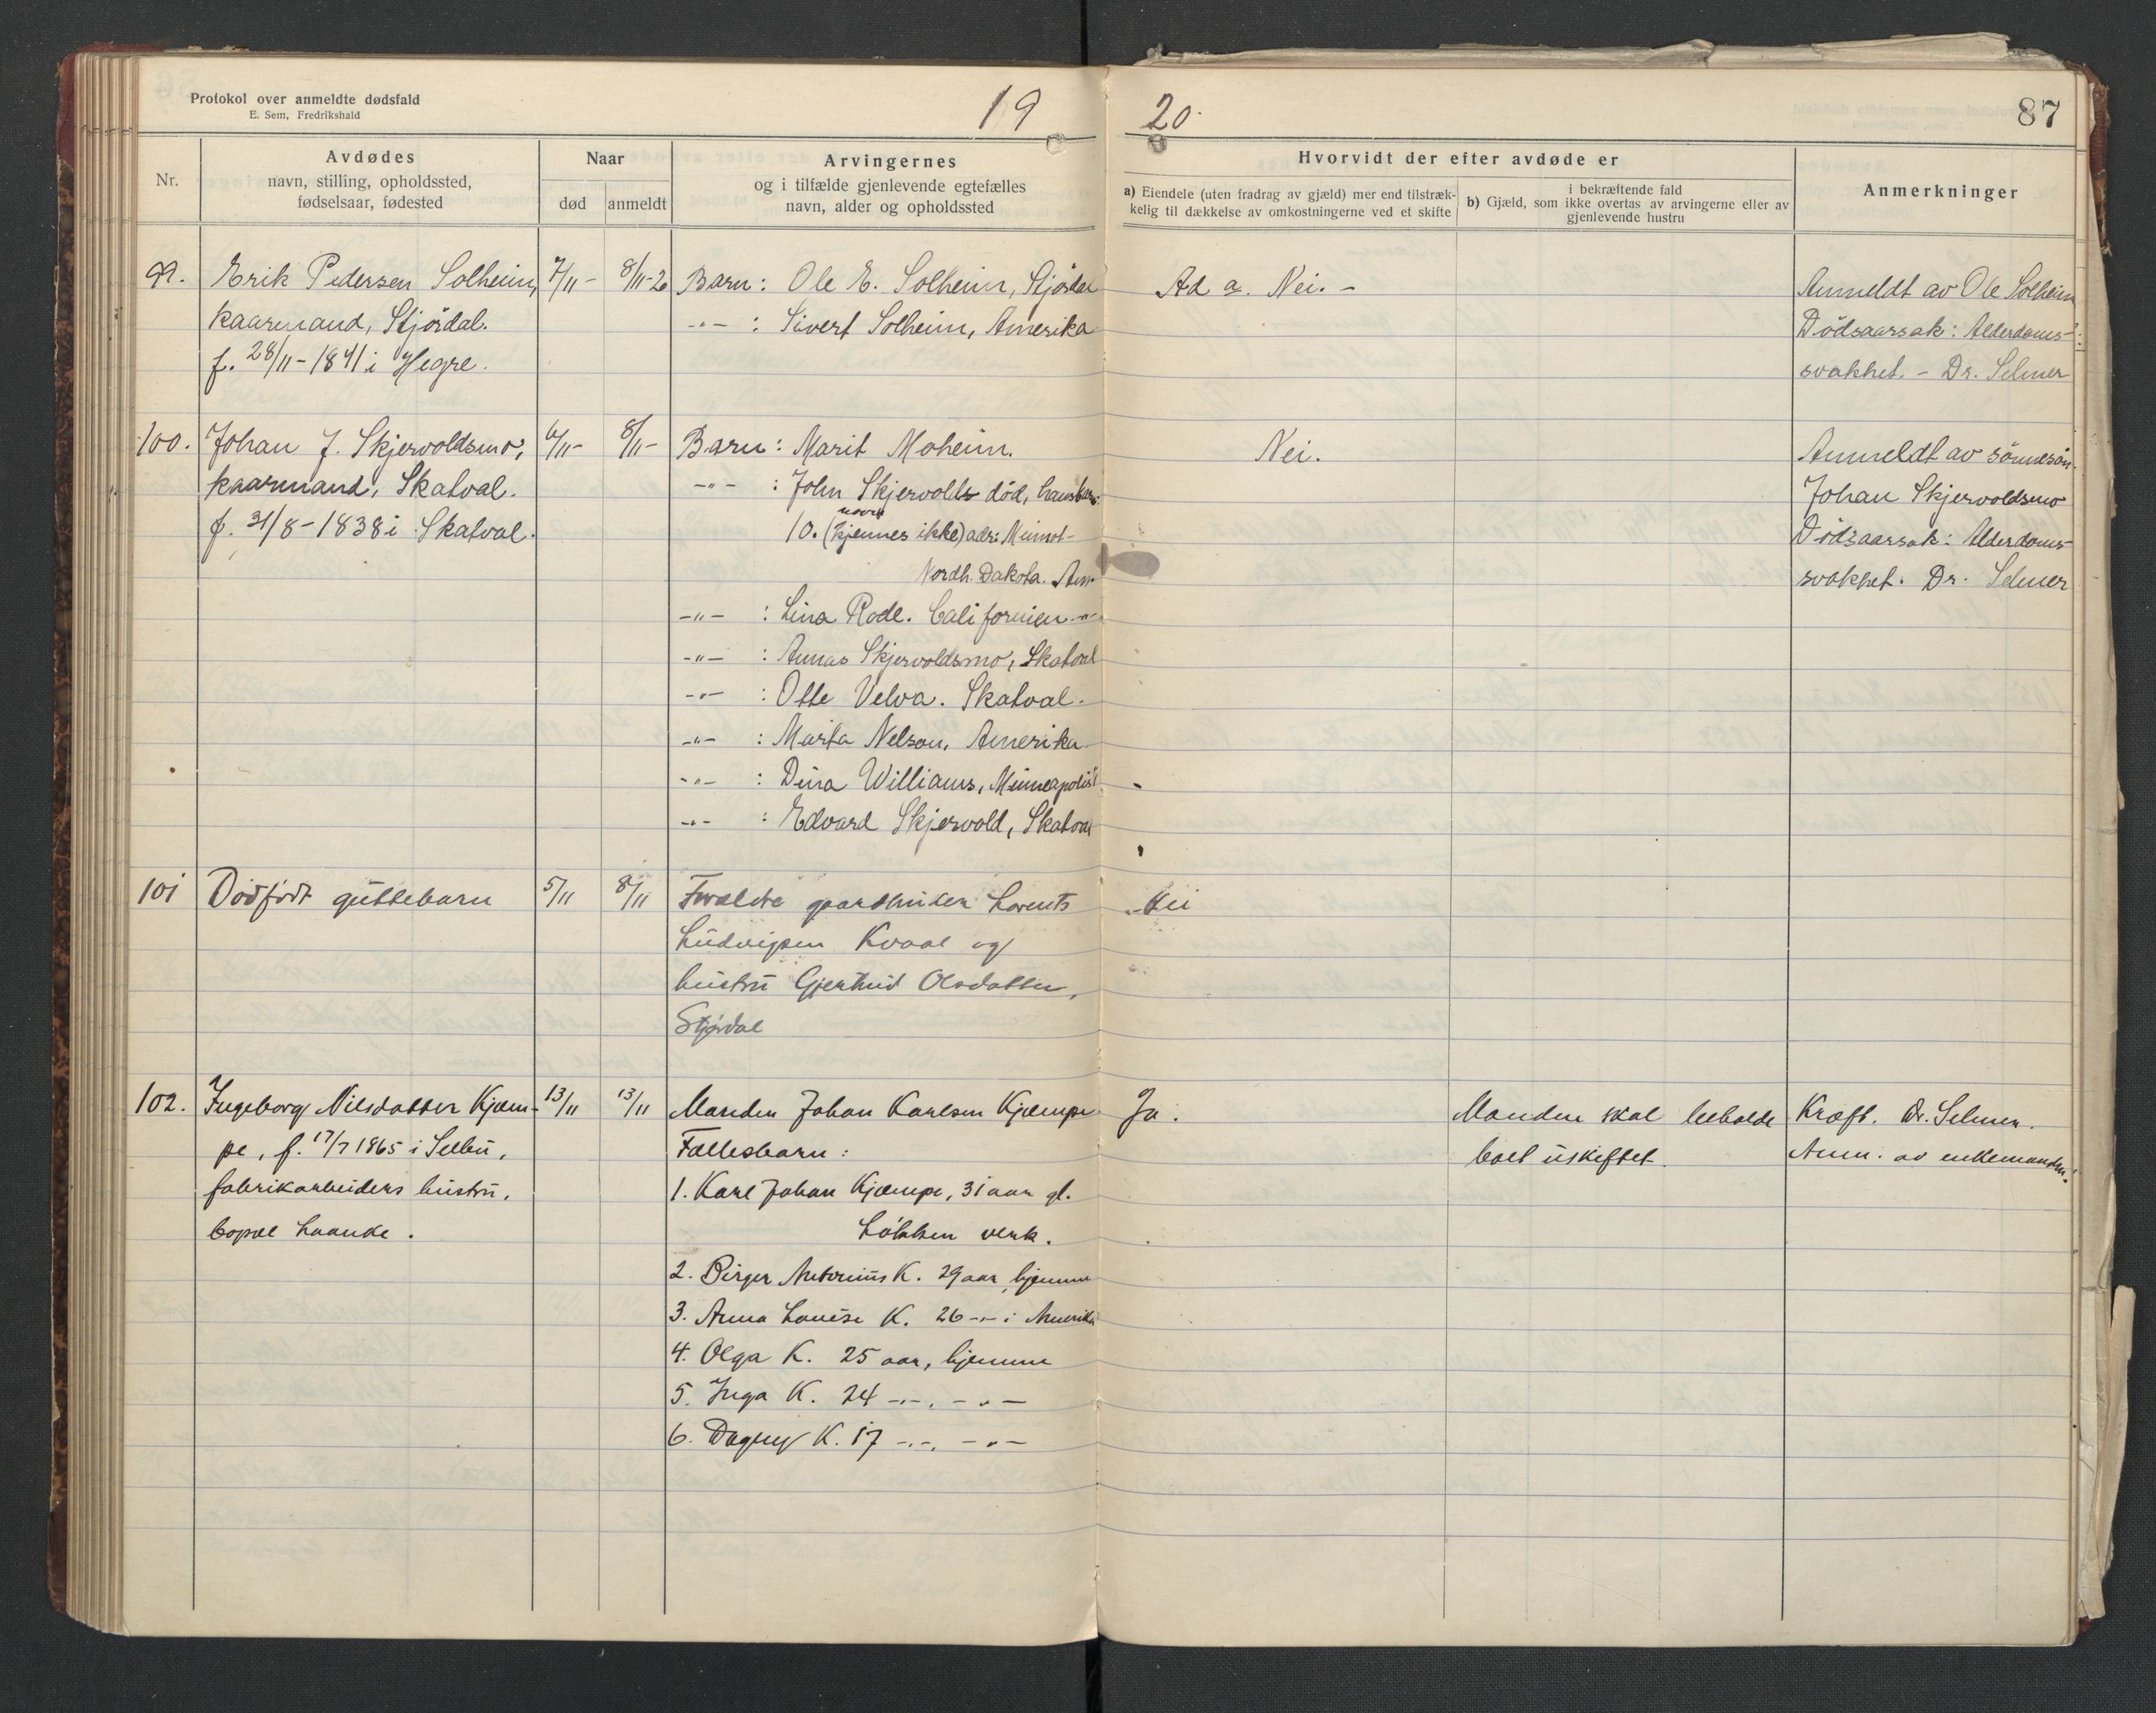 Protokol over anmeldte dødsfald
E. Sem, Fredrikshald
19 20.
87
Nr.
Avdødes
navn, stilling, opholdssted,
fødselsaar, fødested
Naar
død
anmeldt
Arvingernes
og i tilfælde gjenlevende egtefælles
navn, alder og opholdssted
Hvorvidt der efter avdøde er
a) Eiendele (uten fradrag av gjæld) mer end tilstræk-
kelig til dækkelse av omkostningerne ved et skifte
i bekræftende fald
b) Gjæld, som ikke overtas av arvingerne eller av
gjenlevende hustru
Anmerkninger
99.
Erik Pedersen Solheim,
kaarmand, Stjördal.
f. 28/11-1841 i Hegre.
7/11-
8/11-20
Barn: Ole E. Solheim, Stjördal
-"- : Sivert Solheim, Amerika
Ad a. Nei. -
Anmeldt av Ole Solheim
Dödsaarsak: Alderdoms-
svakhet. - Dr. Selmer
100.
Johan J. Skjervoldsmo,
kaarmand, Skatval.
f. 31/8-1838 i Skatval.
6/11-
8/11-
Barn: Marit Moheim.
-"- : John Skjervolds död, hans barn:
navn
10. (kjennes ikke) adr: Minot-
Nordh. Dakota. Am.
-"- : Lina Rode. Californien -"-
-"- : Annas Skjervoldsmo, Skatval
-"- : Otte Velva. Skatval.
-"- : Marta Nelson, Amerika
-"- : Dina Williams, Minneapolis
-"- : Edvard Skjervold, Skatval
Nei.
Anmeldt av sönnesön
Johan Skjervoldsmo
Dödsaarsak: Alderdoms-
svakhet. Dr. Selmer
101
Dödfödt guttebarn
5/11
8/11
Forældre gaardbruker Lorents
Ludvigsen Kvaal og
hustru Gjertrud Olsdatter,
Stjørdal
Nei
102.
Ingeborg Nilsdatter Kjæm-
pe, f. 17/7 1865 i Selbu,
fabrikarbeiders hustru,
bopæl Laanke.
13/11
13/11
Manden Johan Karlsen Kjæmpe
Fællesbarn:
1. Karl Johan Kjæmpe, 31 aar gl.
Løkken verk.
2. Birger Antonius K. 29 aar, hjemme
3. Anna Louise K. 26 -"- i Amerika
4. Olga K. 25 aar, hjemme
5. Inga K. 24 -"-, -"-
6. Dagny K. 17 -"-, -"-
Ja.
Manden skal beholde
boet uskiftet.
Kræft. Dr. Selmer.
Anm. av enkemanden.